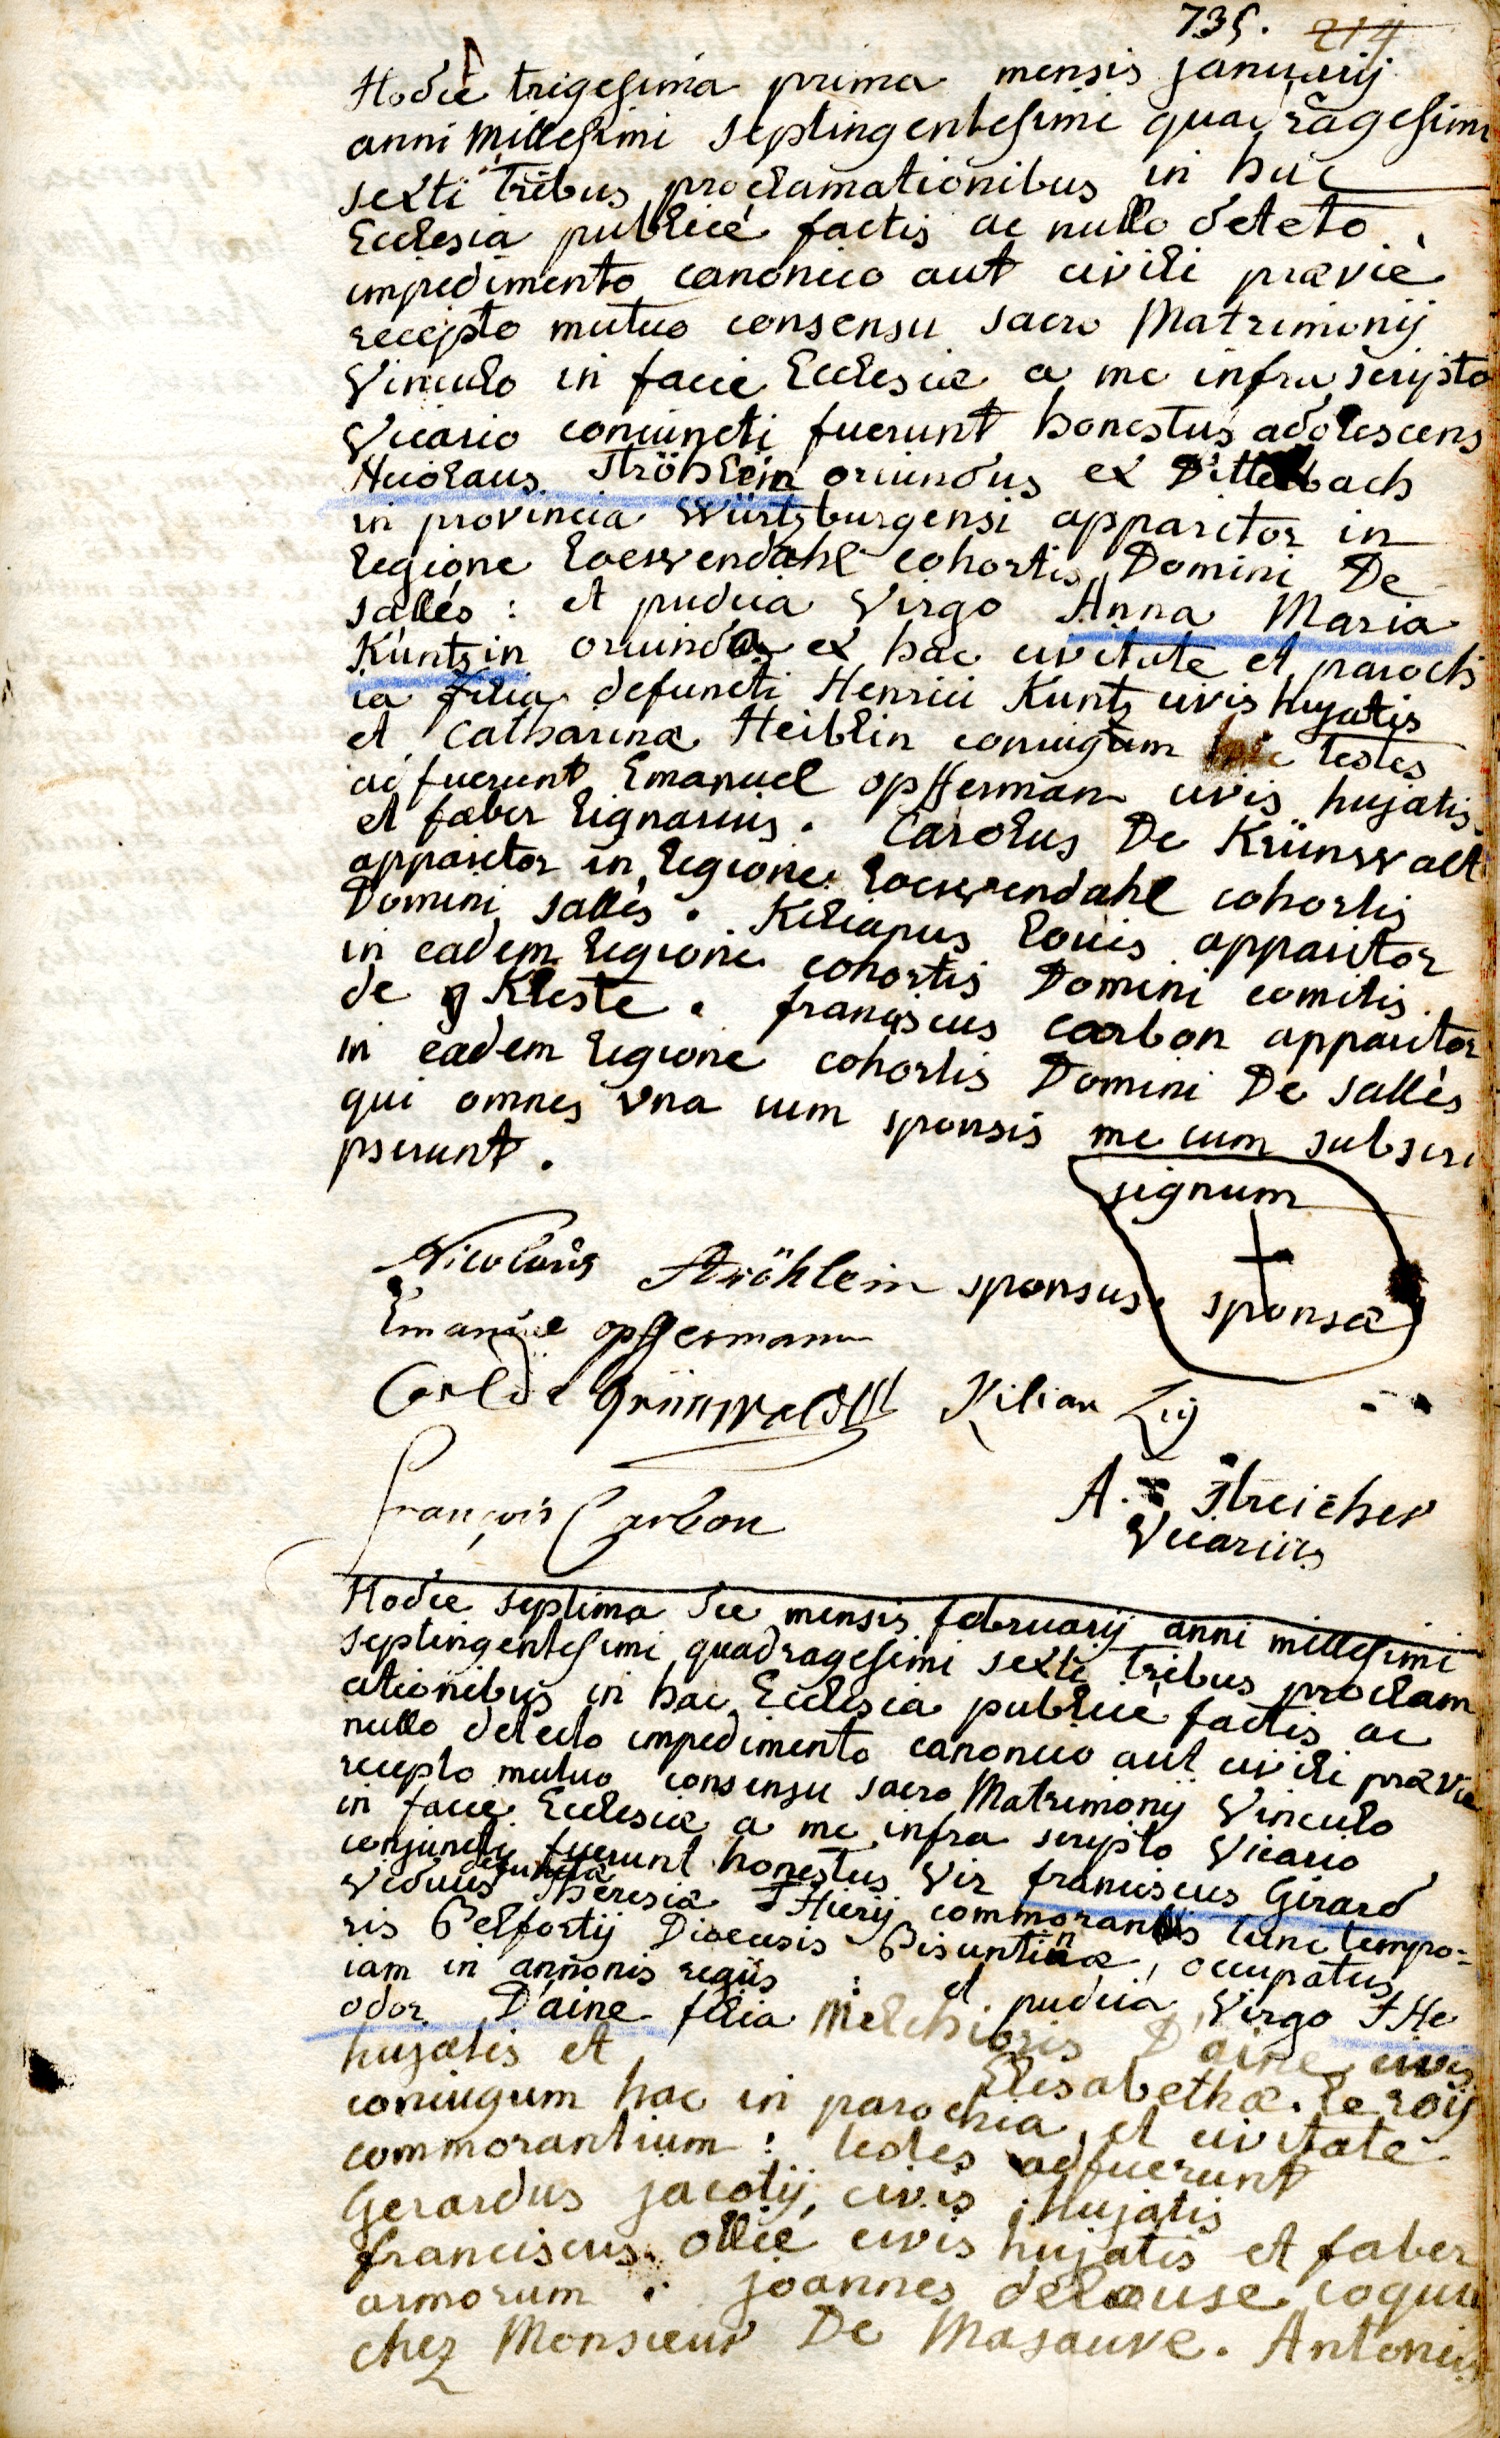 735. 214
Hodie trigesima prima mensis januarij
anni Millesimi septingentesimi quadragesimi
sexti tribus proclamationibus in hac
Ecclesia publicè factis ac nullo deteto
impedimento canonico aut civili præviè
recepto mutuo consensu sacro Matrimonij
Vinculo in facie Ecclesiæ a me infra scripto
Vicario coniuncti fuerunt honestus adolescens
Nicolaus Ströhlein oriundus ex Dittelbach
in provincia Würtzburgensi apparitor in
legione Loewendahl cohortis Domini De
sallés : et pudica Virgo Anna Maria
Kuntzin oriunda ex hac civitate et paroch
ia filia defuncti Henrici Kuntz civis hujatis
et Catharinæ Heiblin coniugum testes
adfuerunt Emanuel opfferman civis hujatis
et faber lignarius. Carolus De Krünwalt
apparitor in legione Loewendahl cohortis
Domini sallés. Kilianus Louis apparitor
in eadem legione cohortis Domini comitis
de Kleste. franciscus carbon apparitor
in eadem legione cohortis Domini De sallès
qui omnes vna cum sponsis me cum subscri
pserunt.
signum
+
sponsæ
Nicolaus Ströhlein sponsus.
Emanuel opffermann
Carl de Grünwaldt Kilian
françois Carbon
A. Streicher
Vicarius
Hodie septima die mensis februarij anni millesimi
septingentesimi quadragesimi sexti tribus proclam
ationibus in hac Ecclesia publicè factis ac
nullo detecto impedimento canonico aut civili prævie
recepto mutuo consensu sacro Matrimonij Vinculo
in facie Ecclesiæ a me infra scripto Vicario
conjuncti fuerunt honestus Vir franciscus Girard
viduus defunctæ Theresiæ THierij commorantis tunc tempo=
ris Belfortij Dioecesis Bisuntinæ, occupatus
iam in annonis regiis : et pudica Virgo THe
odor Daine filia Melchioris Daine civis
hujatis et Elisabethæ le roij
coniugum hac in parochia et civitate
commorantium : testes adfuerunt
Gerardus jacotij civis hujatis
franciscus ollié civis hujatis et faber
armorum. joannes delouse coquus
chez Monsieur De Masauve. Antonius